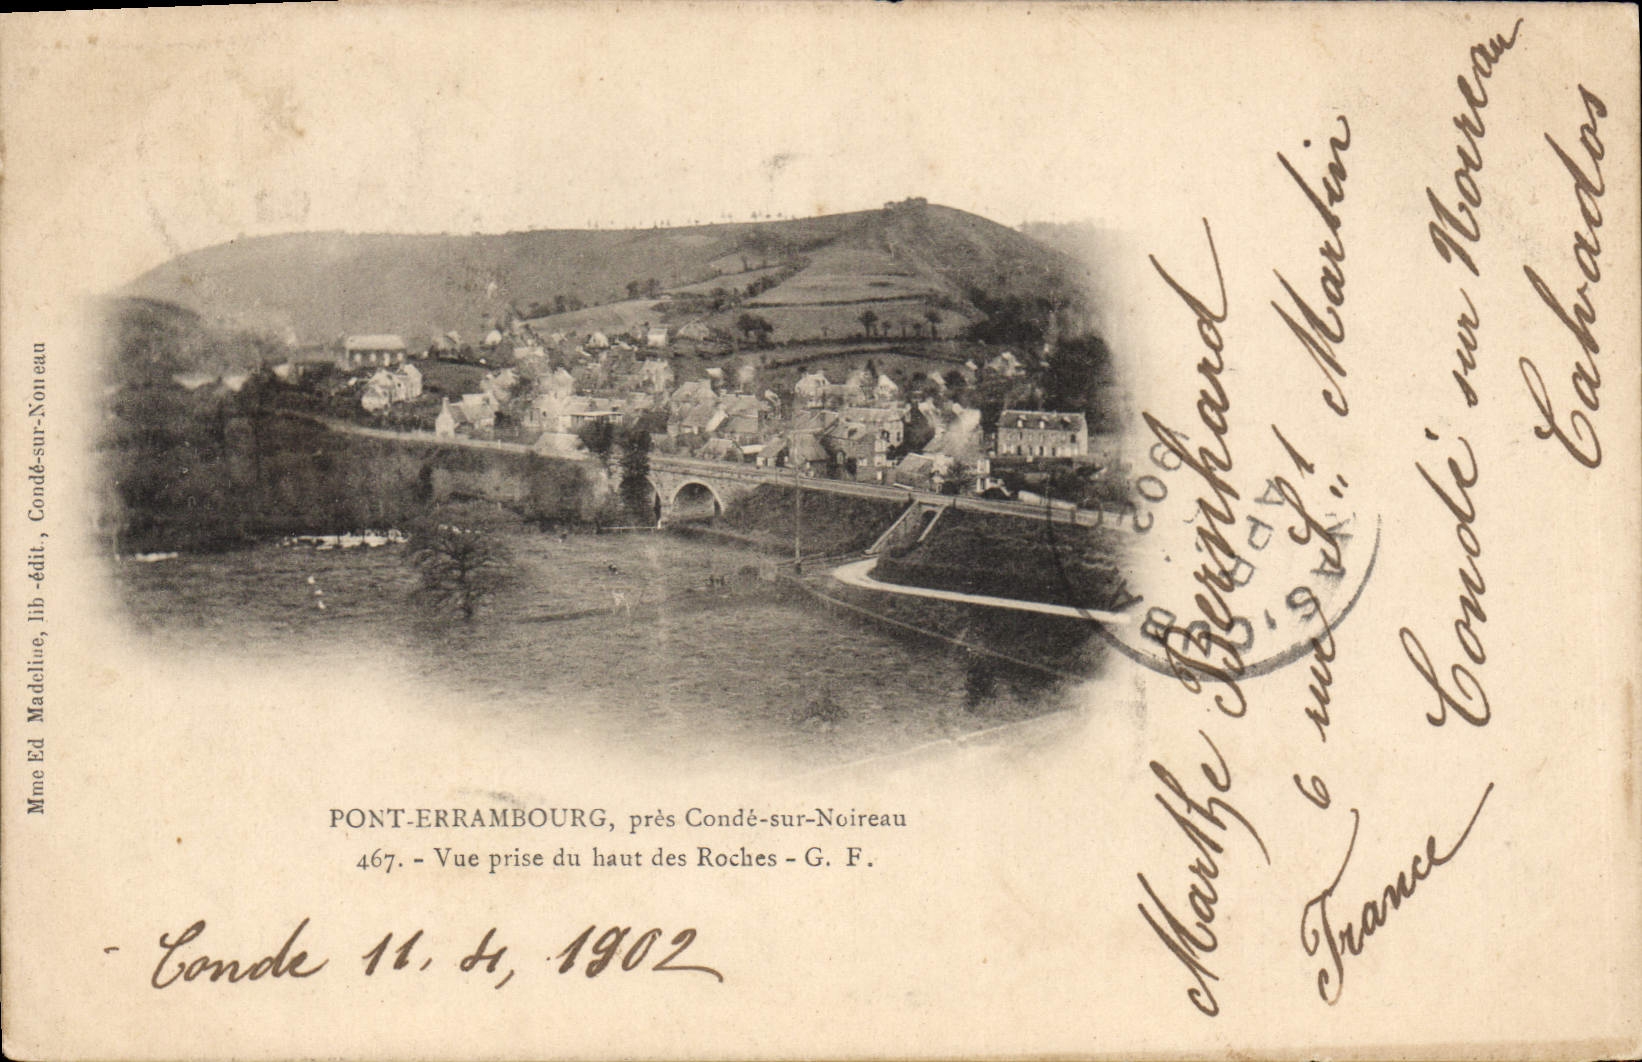 Mme Ed Madeline, lib-édit., Condé-sur-Noireau
PONT-ERRAMBOURG, près Condé-sur-Noireau
467. - Vue prise du haut des Roches - G. F.
- Conde 11. 4, 1902
Marthe Bernhard
6 rue St Martin
Condé sur Noireau
Calvados
France